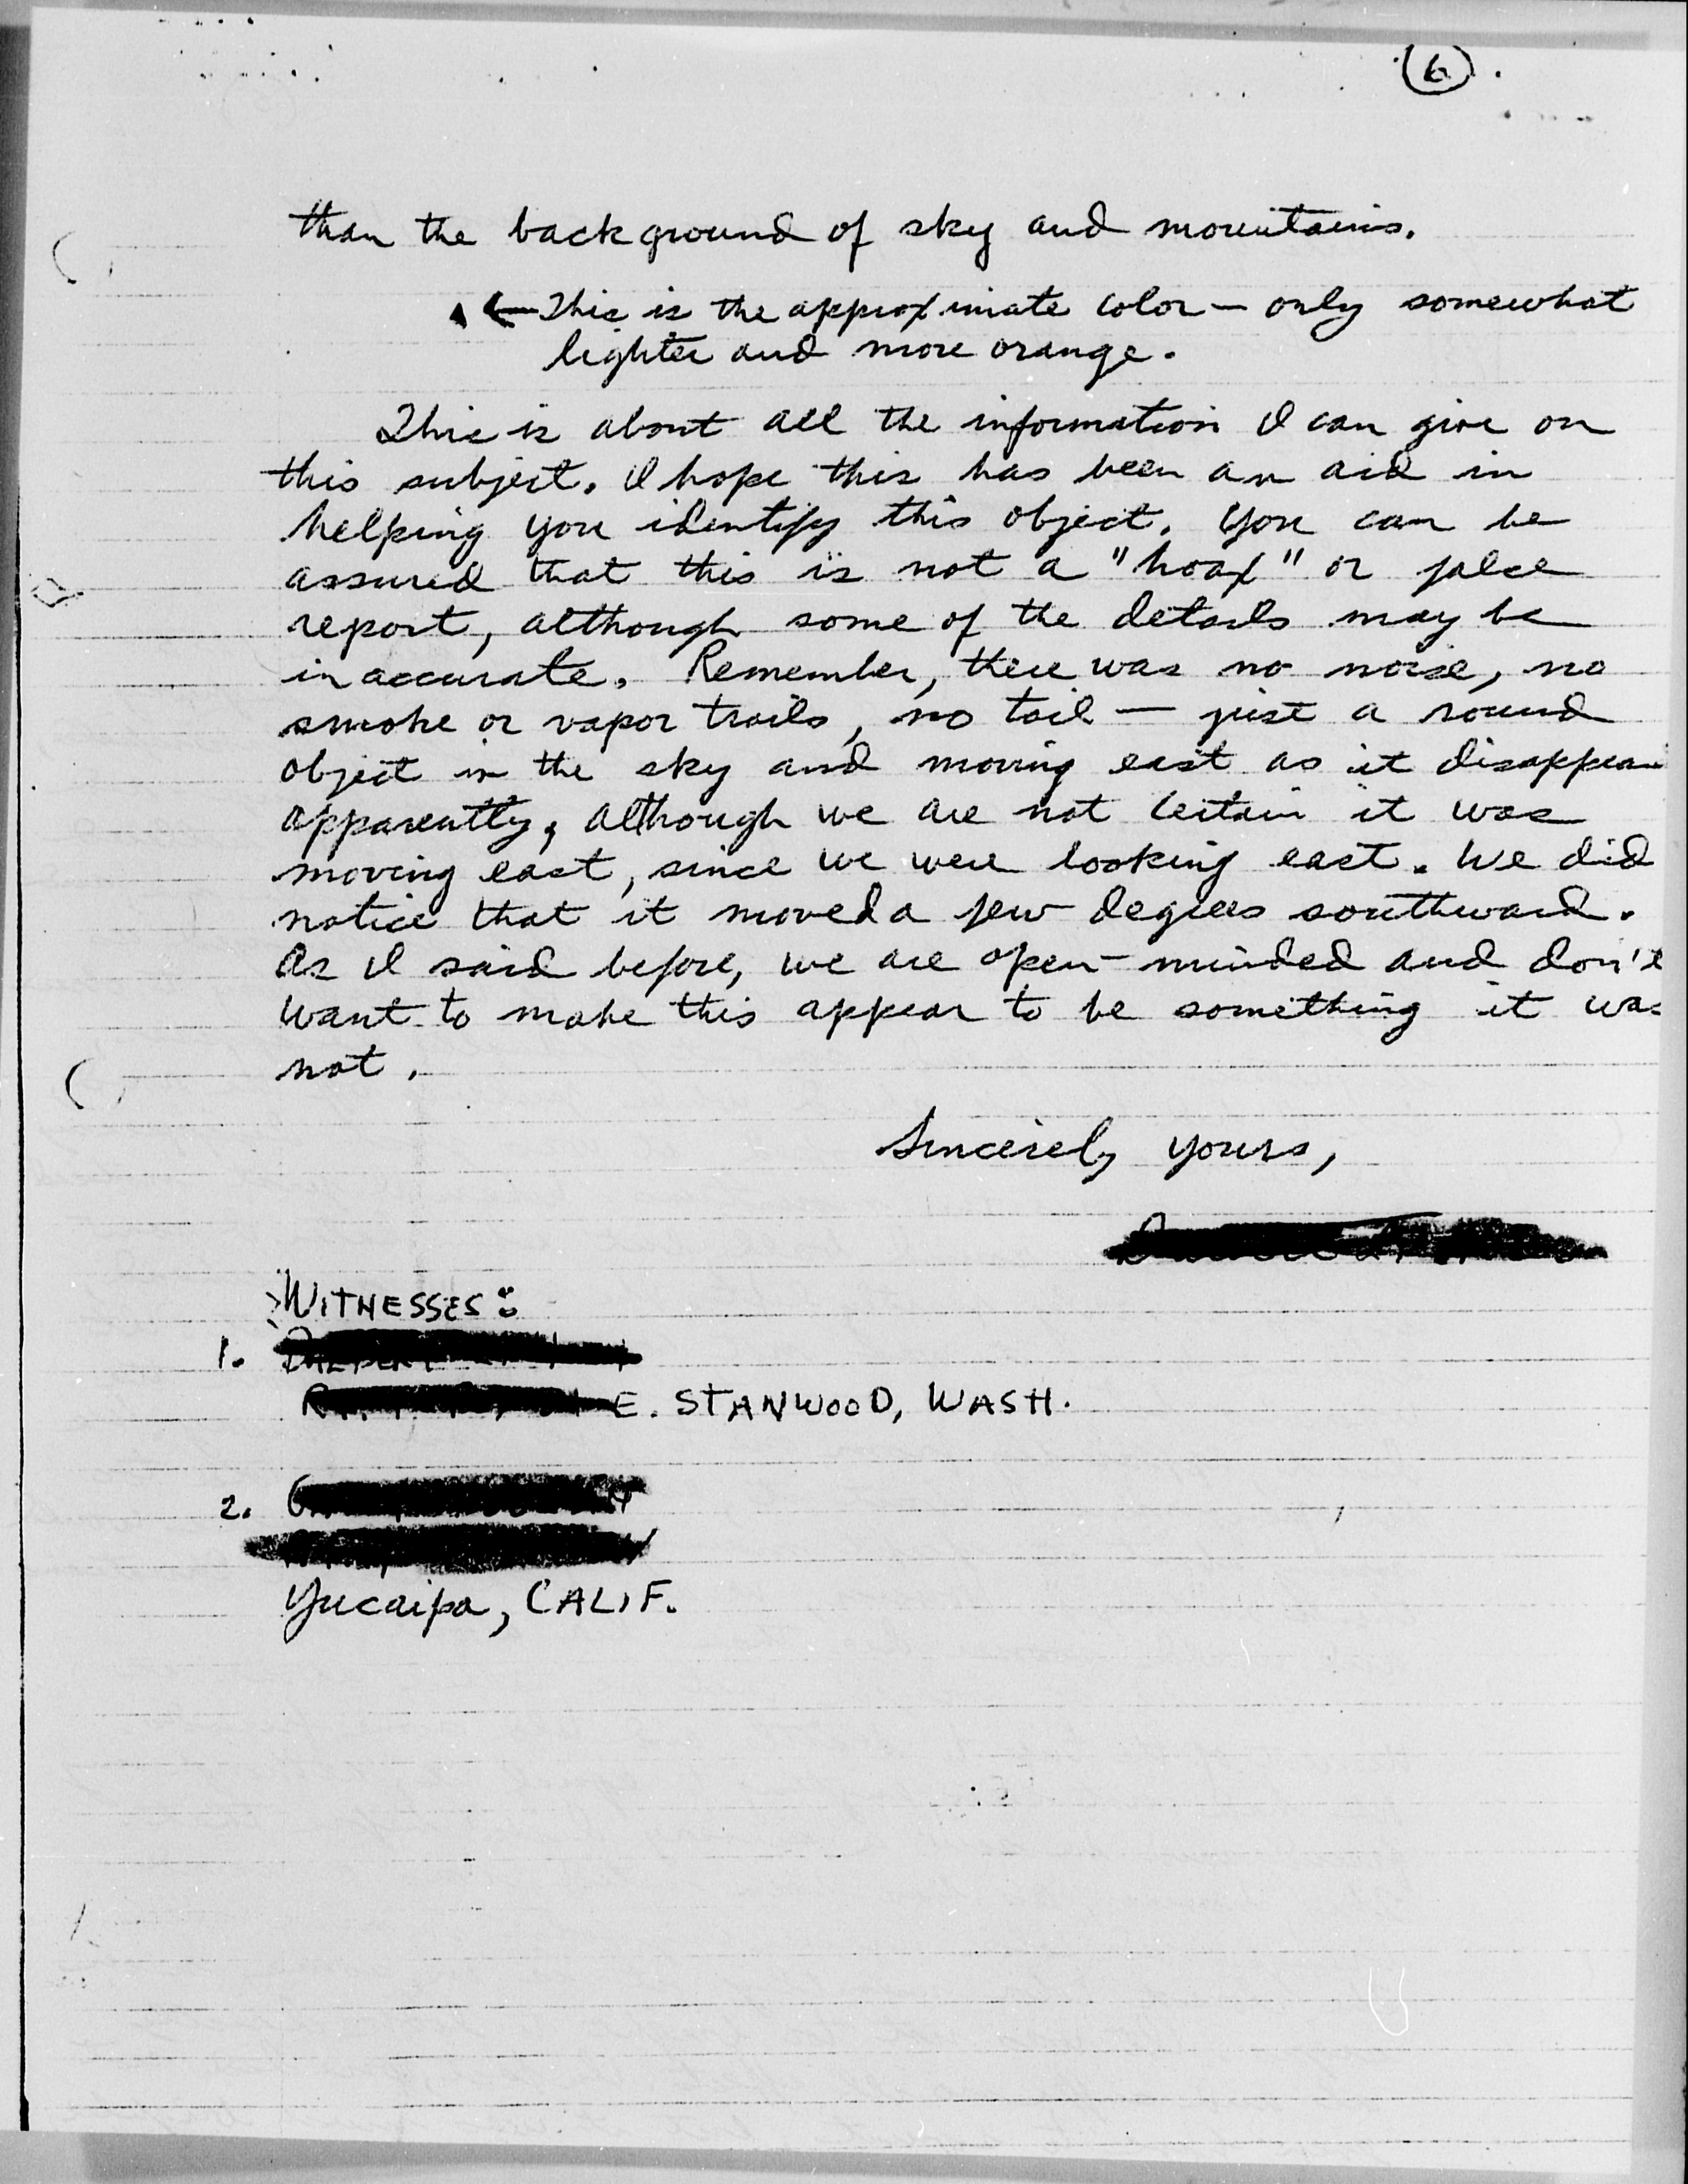 6
than the background of sky and mountains.
← This is the approximate color — only somewhat
lighter and more orange.
This is about all the information I can give on
this subject. I hope this has been an aid in
helping you identify this object. You can be
assured that this is not a "hoax" or false
report, although some of the details may be
inaccurate. Remember, there was no noise, no
smoke or vapor trails, no tail — just a round
object in the sky and moving east as it disappear
apparently, although we are not certain it was
moving east, since we were looking east. We did
notice that it moved a few degrees southward.
As I said before, we are open-minded and don't
want to make this appear to be something it was
not.
Sincerely yours,
WITNESSES:
1.
E. STANWOOD, WASH.
2.
Yucaipa, CALIF.